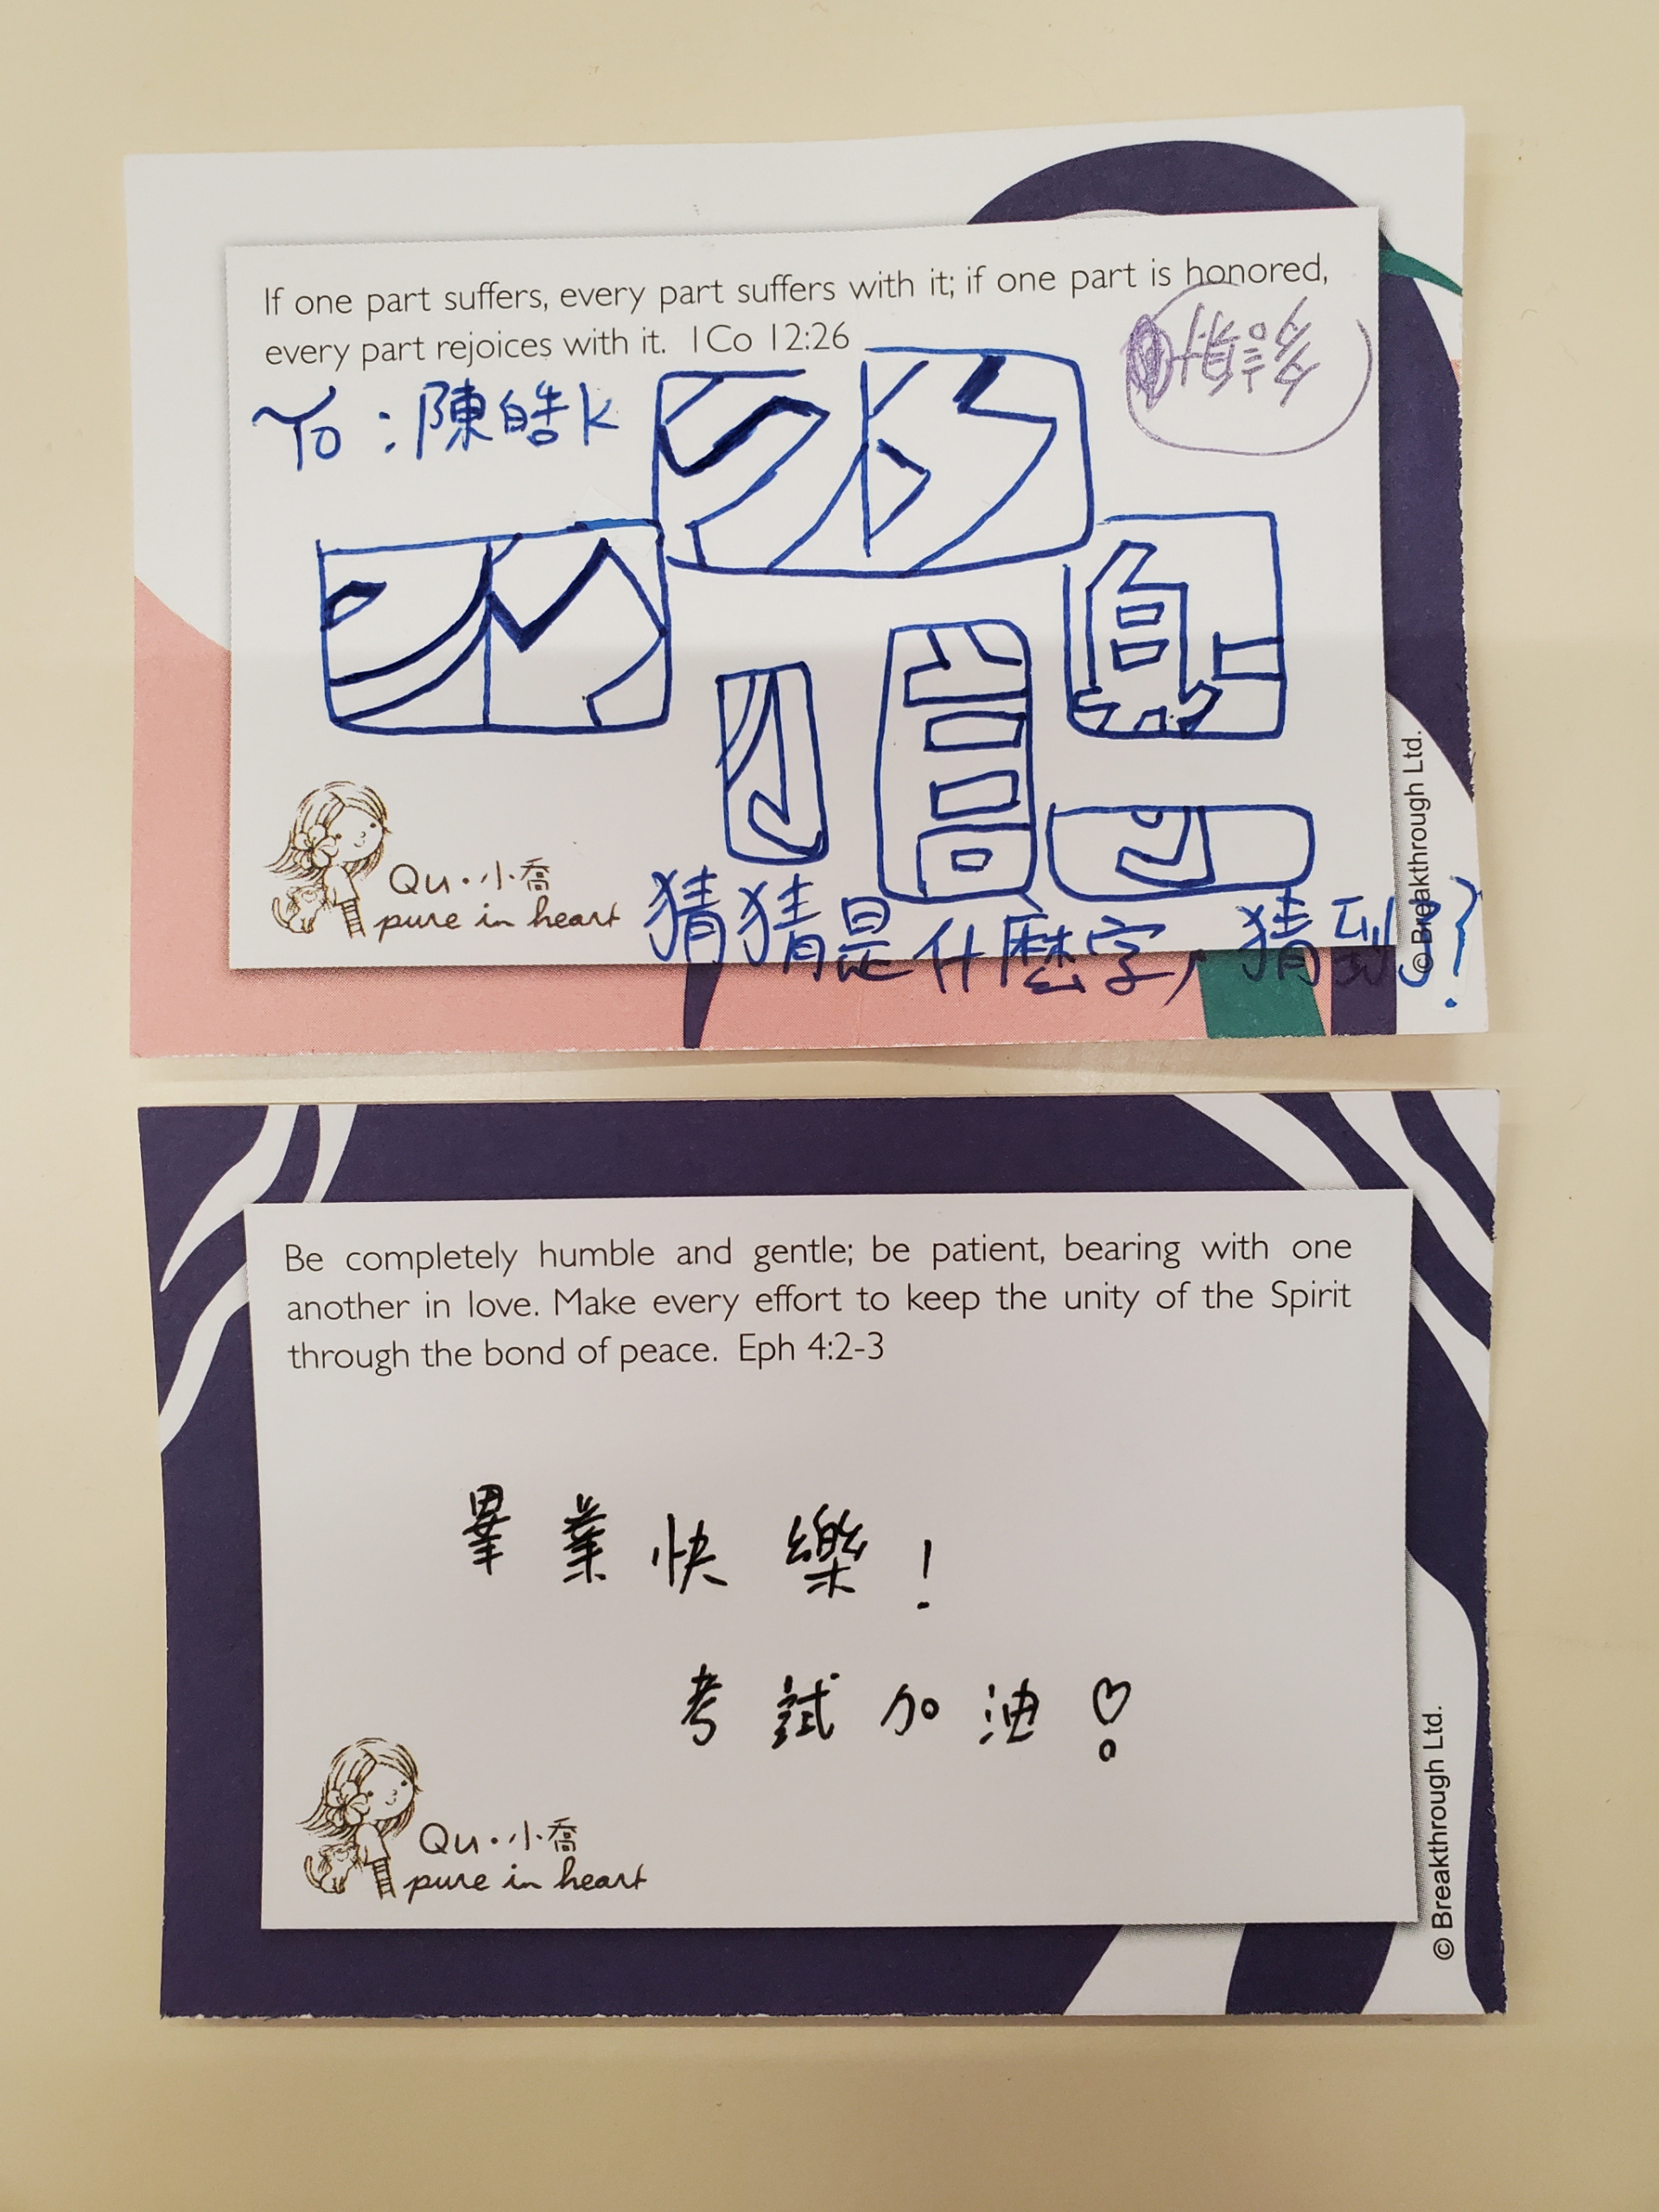 If one part suffers, every part suffers with it; if one part is honored,
every part rejoices with it. 1Co 12:26
Yo : 陳皓k
Qu·小喬
pure in heart
猜猜是什麼字，猜到
© Breakthrough Ltd.
Be completely humble and gentle; be patient, bearing with one
another in love. Make every effort to keep the unity of the Spirit
through the bond of peace. Eph 4:2-3
畢業快樂！
考試加油
Qu·小喬
pure in heart
© Breakthrough Ltd.